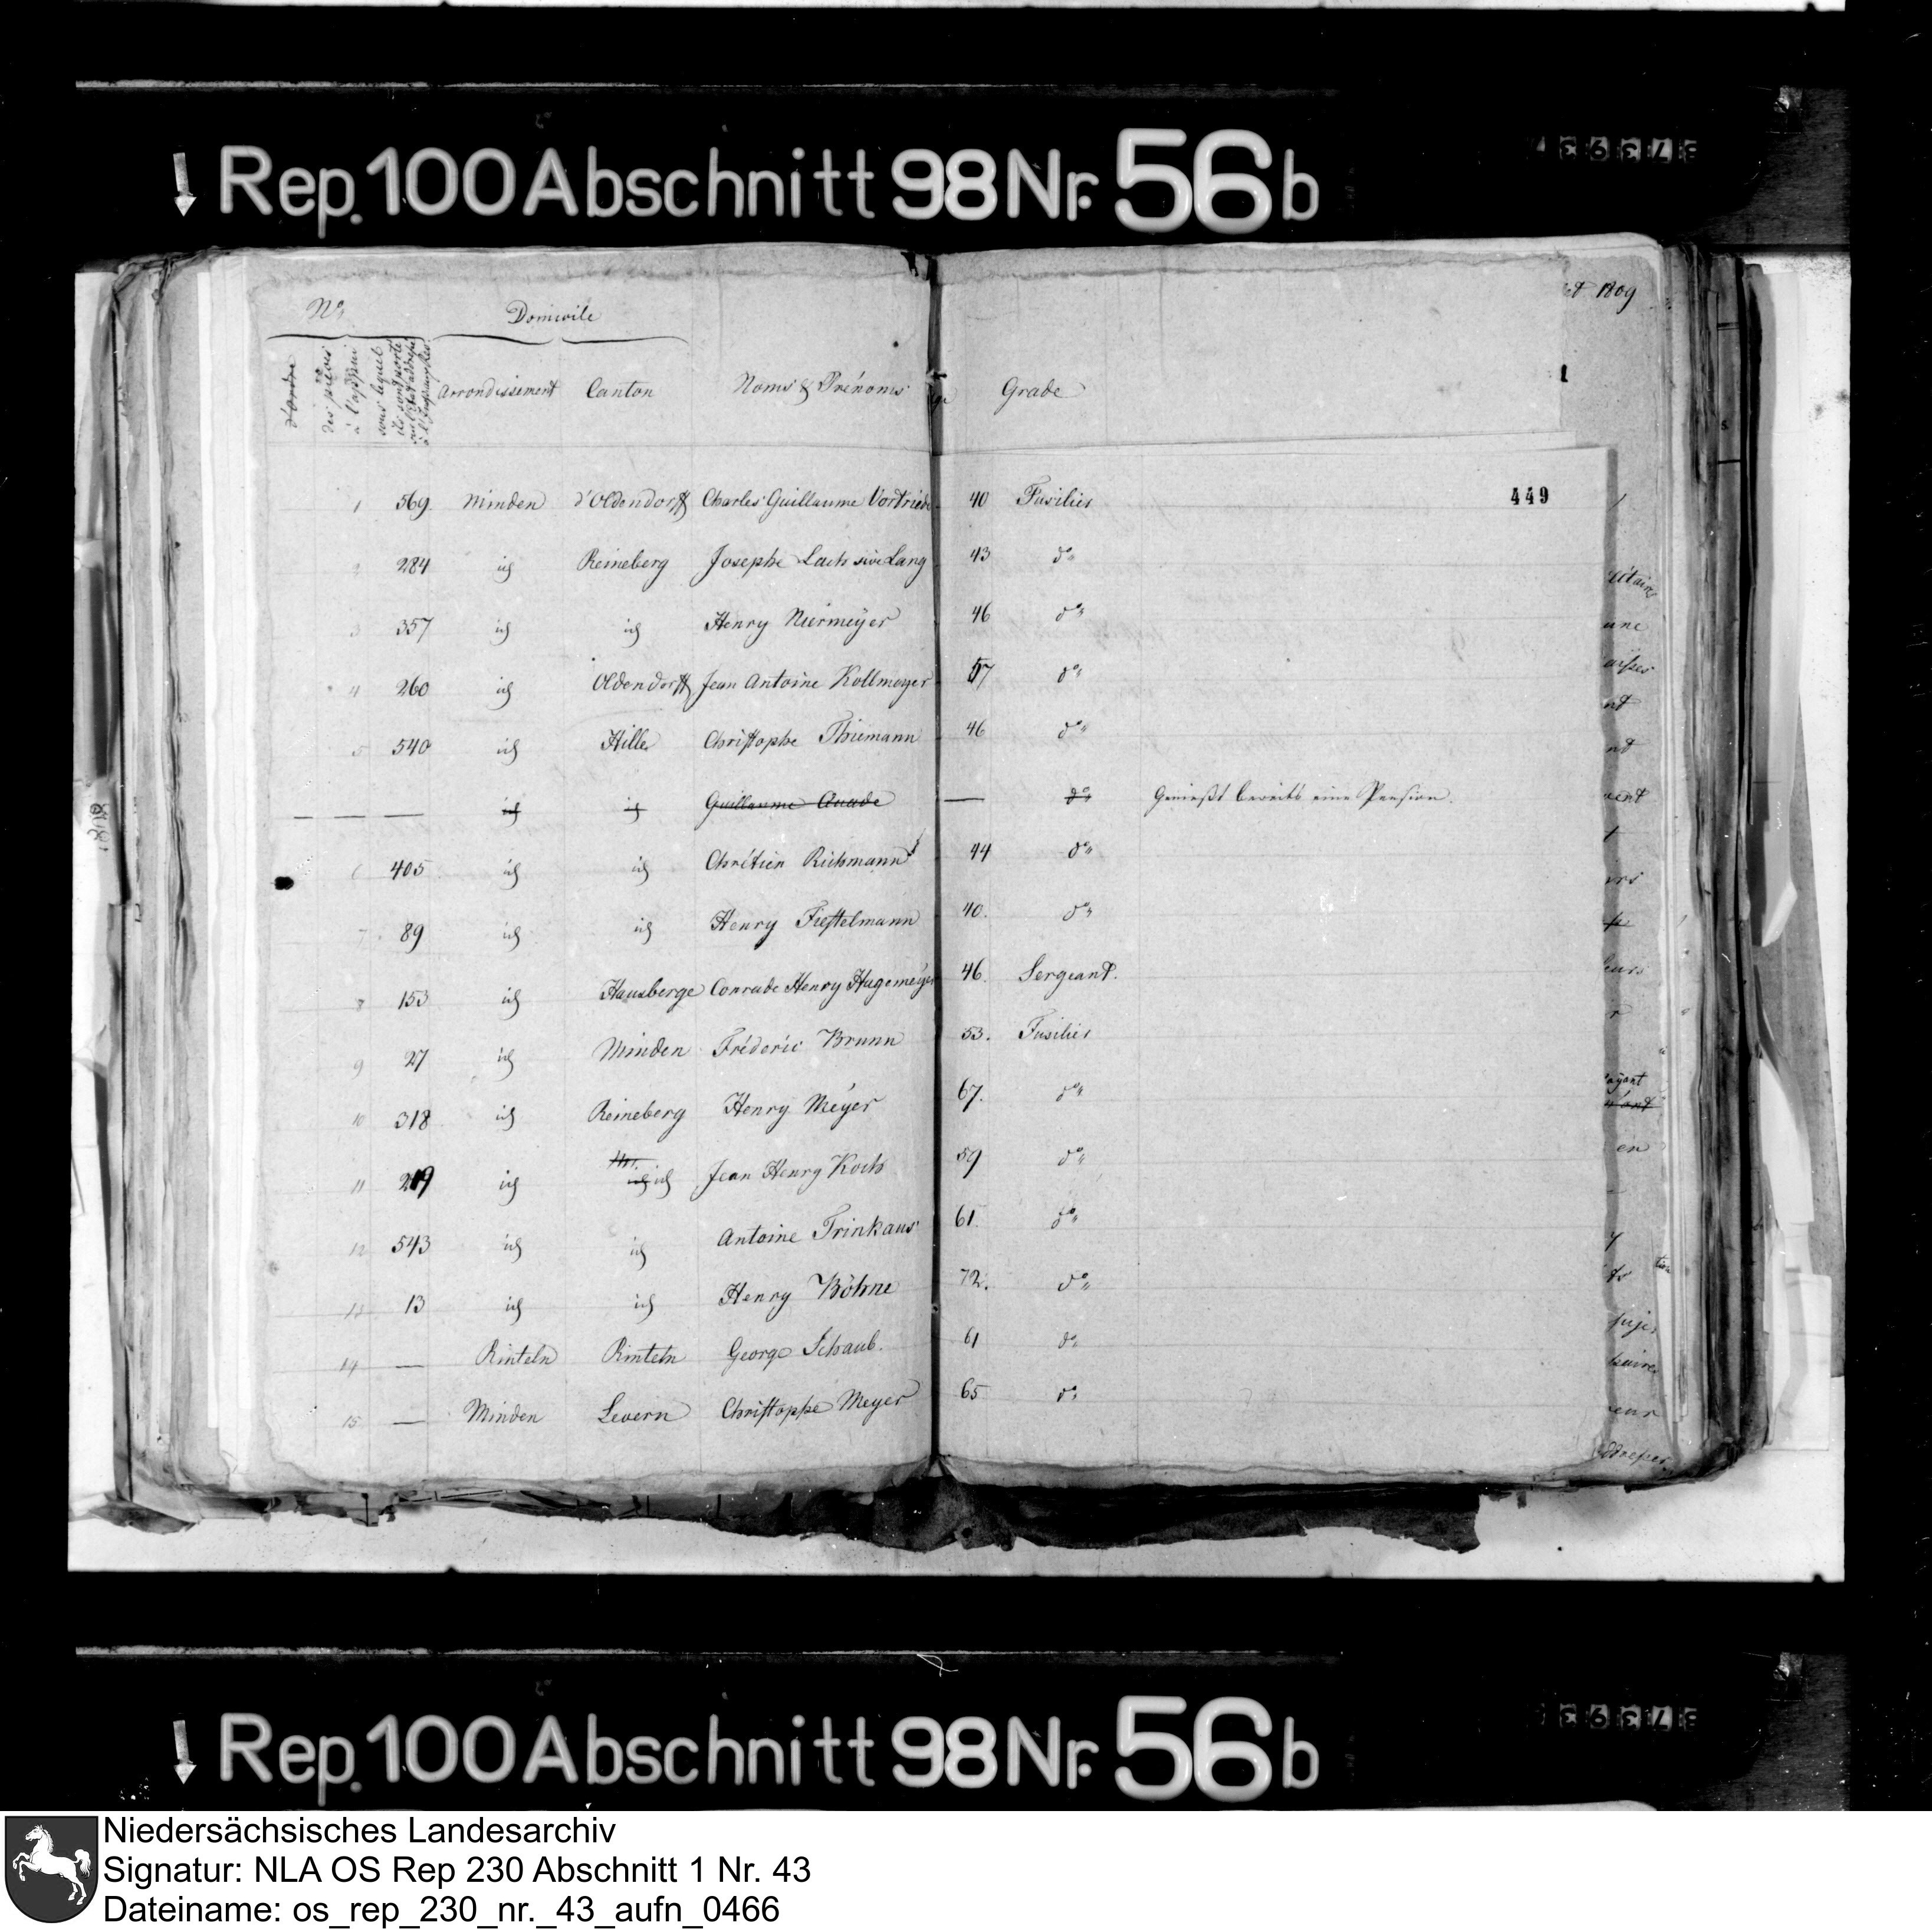 Rep. 100 Abschnitt 98 Nr. 56b
et 1809
Nº
Domicile
d'ordre
des pièces
à l'appui
sous lequel
ils sont porté
Arrondissement Canton Noms & Prénoms Grade
1 569 Minden d'Oldendorff Charles Guillaume Vortriede 40 Fusilier 449
2 284 id Reineberg Josephe Lach sive Lang 43 dº
3 357 id id Henry Niermeÿer 46 dº
4 260 id Oldendorff Jean Antoine Kollmeyer 57 dº
5 540 id Hille Christophe Thiemann 46 dº
— — — id id Guillaume — dº Genießt bereits eine Pension.
6 405 id id Chrétien Richmann 44 dº
7 89 id id Henry Fiestelmann 40. dº
8 153 id Hausberge Conrade Henry Hagemeÿer 46. Sergeant.
9 27 id Minden Fréderic Brunn 53. Fusilier
10 318 id Reineberg Henry Meÿer 67. dº
11 219 id id id Jean Henry Koch 59 dº
12 543 id id Antoine Trinkaus 61. dº
13 13 id id Henry Böhne 72. dº
14 — Rinteln Rinteln George Schaub. 61 dº
15 — Minden Levern Christophe Meyer 65 dº
Rep. 100 Abschnitt 98 Nr. 56b
Niedersächsisches Landesarchiv
Signatur: NLA OS Rep 230 Abschnitt 1 Nr. 43
Dateiname: os_rep_230_nr._43_aufn_0466